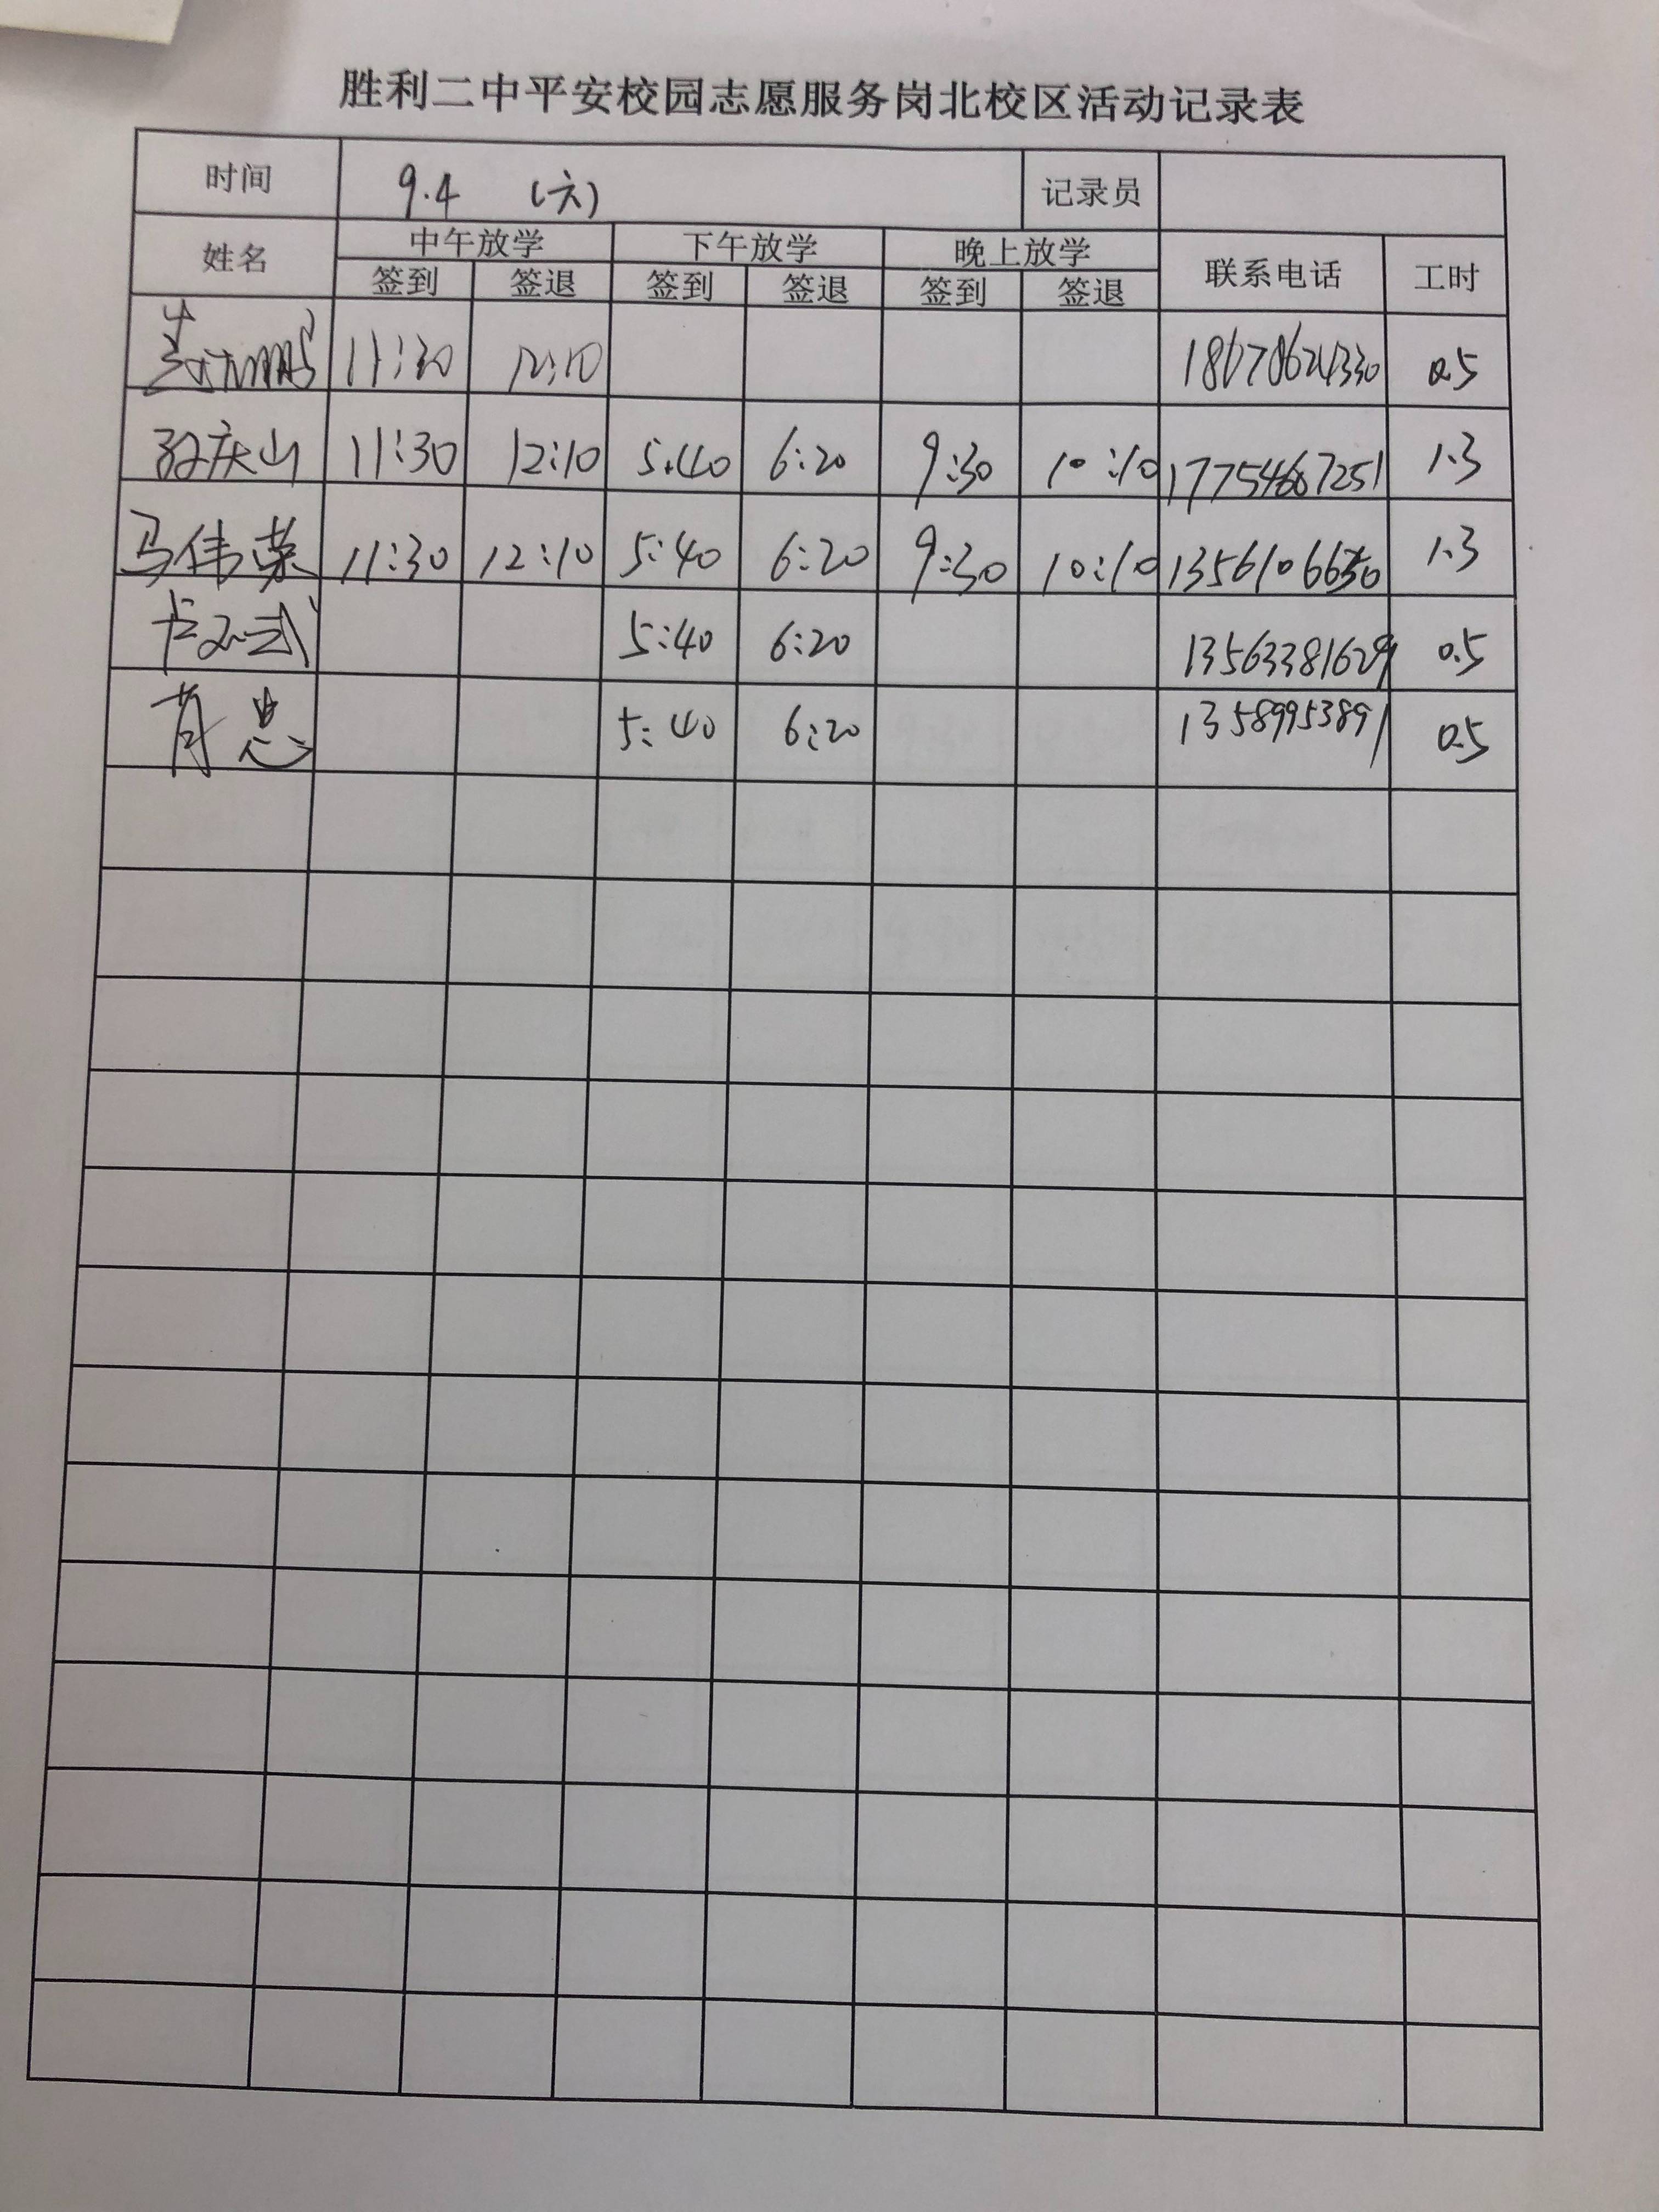 胜利二中平安校园志愿服务岗北校区活动记录表
时间 9.4 (六) 记录员
姓名 中午放学 下午放学 晚上放学 联系电话 工时
签到 签退 签到 签退 签到 签退
11:30 12:10 18678624330 0.5
孙庆山 11:30 12:10 5:40 6:20 9:30 10:10 17754667251 1.3
马伟荣 11:30 12:10 5:40 6:20 9:30 10:10 1.3
5:40 6:20 13563381629 0.5
肖忠 5:40 6:20 13589953891 0.5